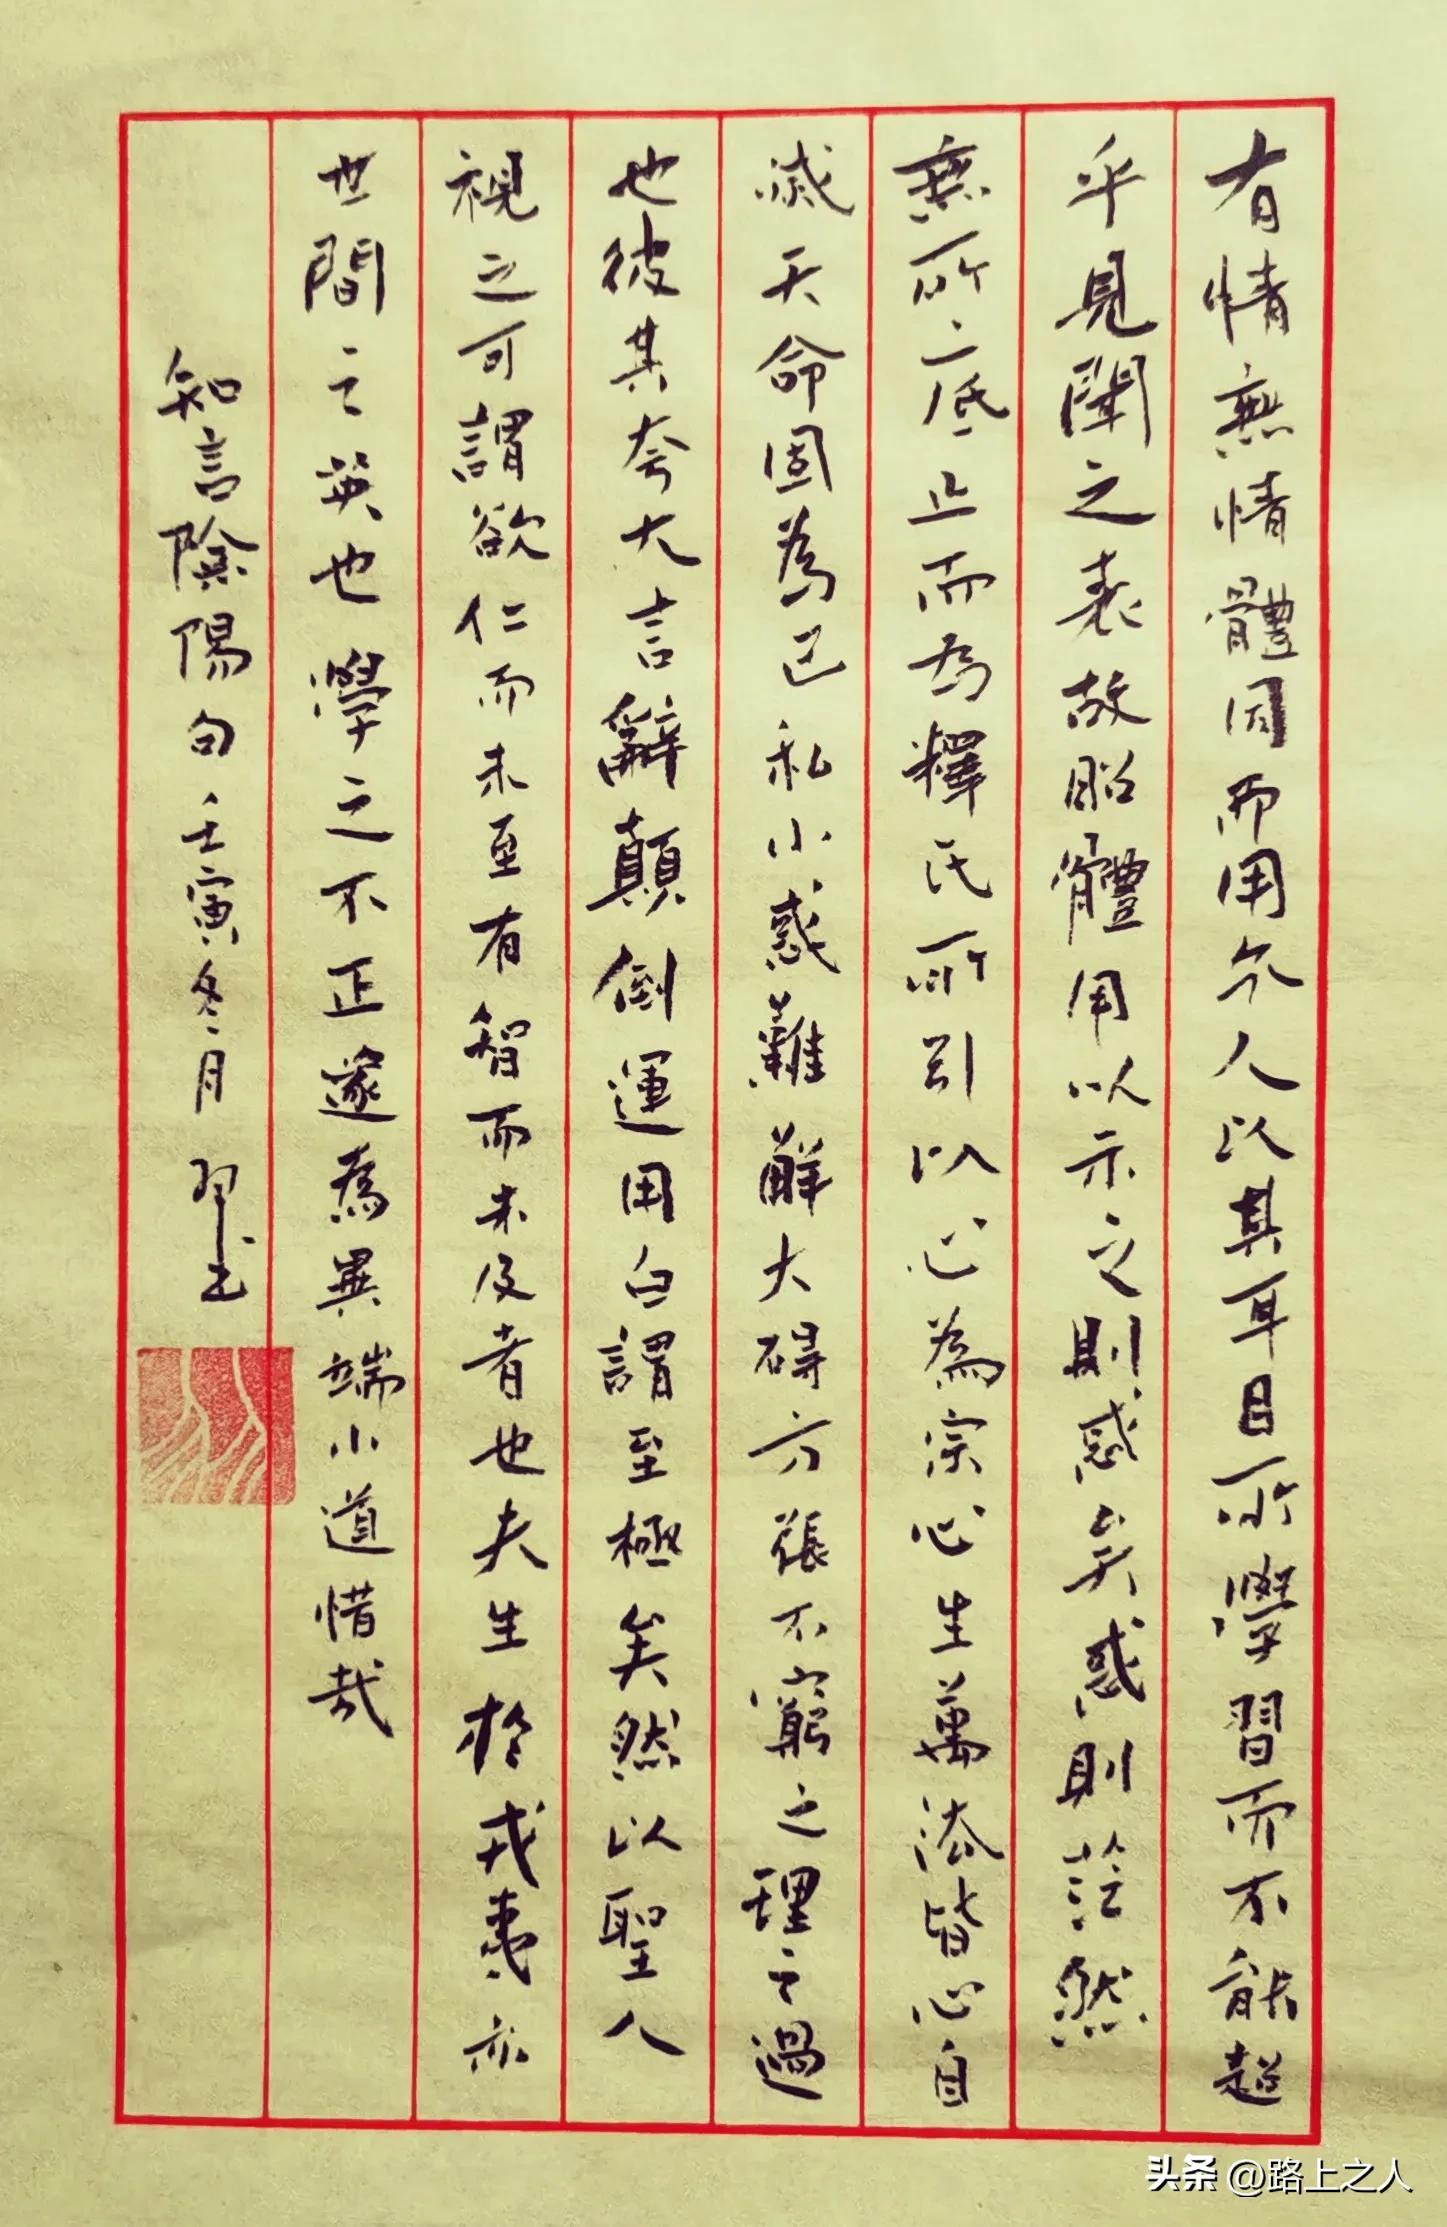 有情無情體同而用分人以其耳目所學習而不能超
乎見聞之表故昭體用以示之則惑矣惑則茫然
無所底止而為釋氏所引以心為宗心生萬法皆心自
滅天命固為己私小惑難解大碍方張不窮之理之過
也彼其夸大言辭顛倒運用自謂至極矣然以聖人
視之可謂欲仁而未至有智而未及者也夫生於戎夷亦
世間之英也學之不正遂為異端小道惜哉
知言陰陽句壬寅冬月
头条 @路上之人